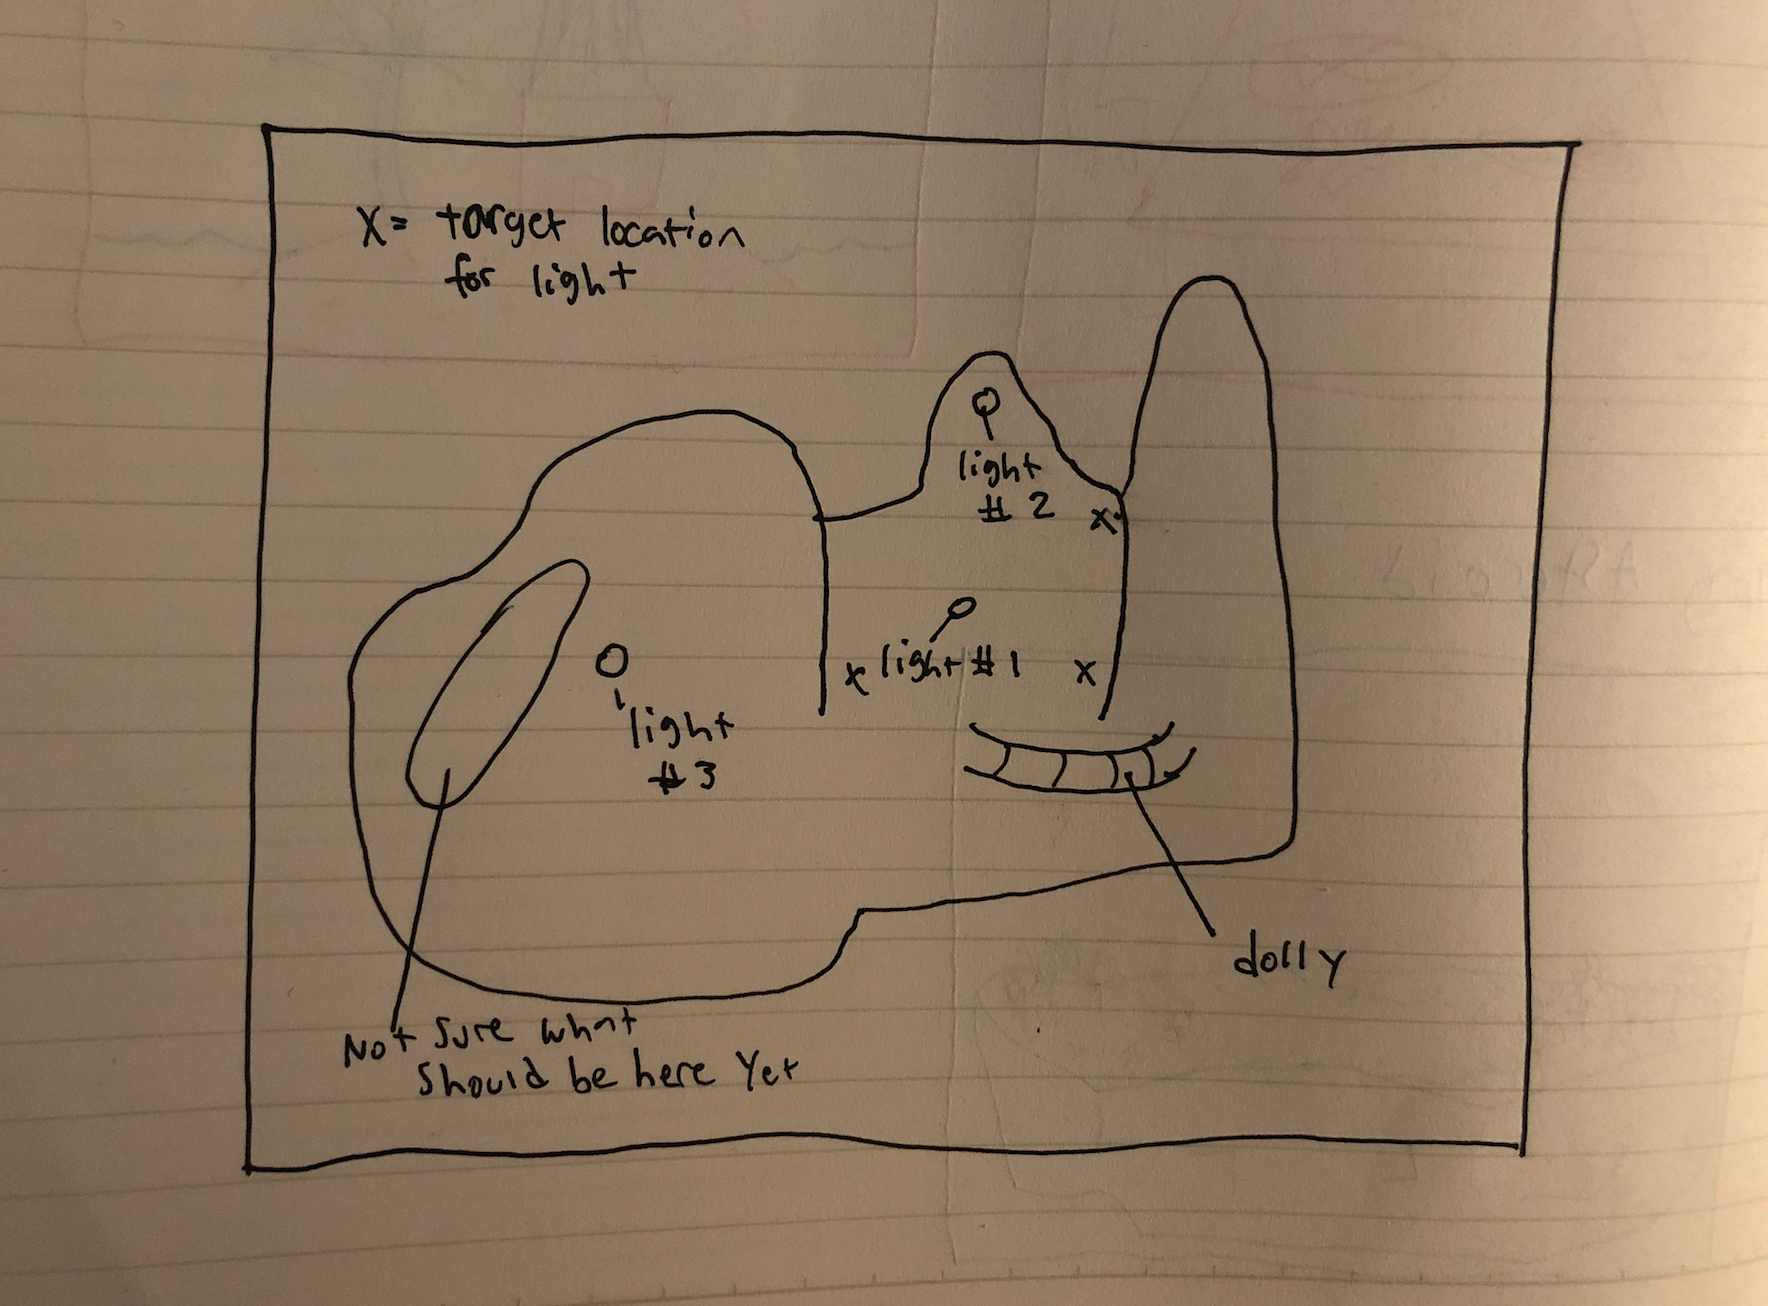 X = target location
for light
light
# 2
x
light #1
x
x
light
# 3
dolly
Not sure what
should be here yet